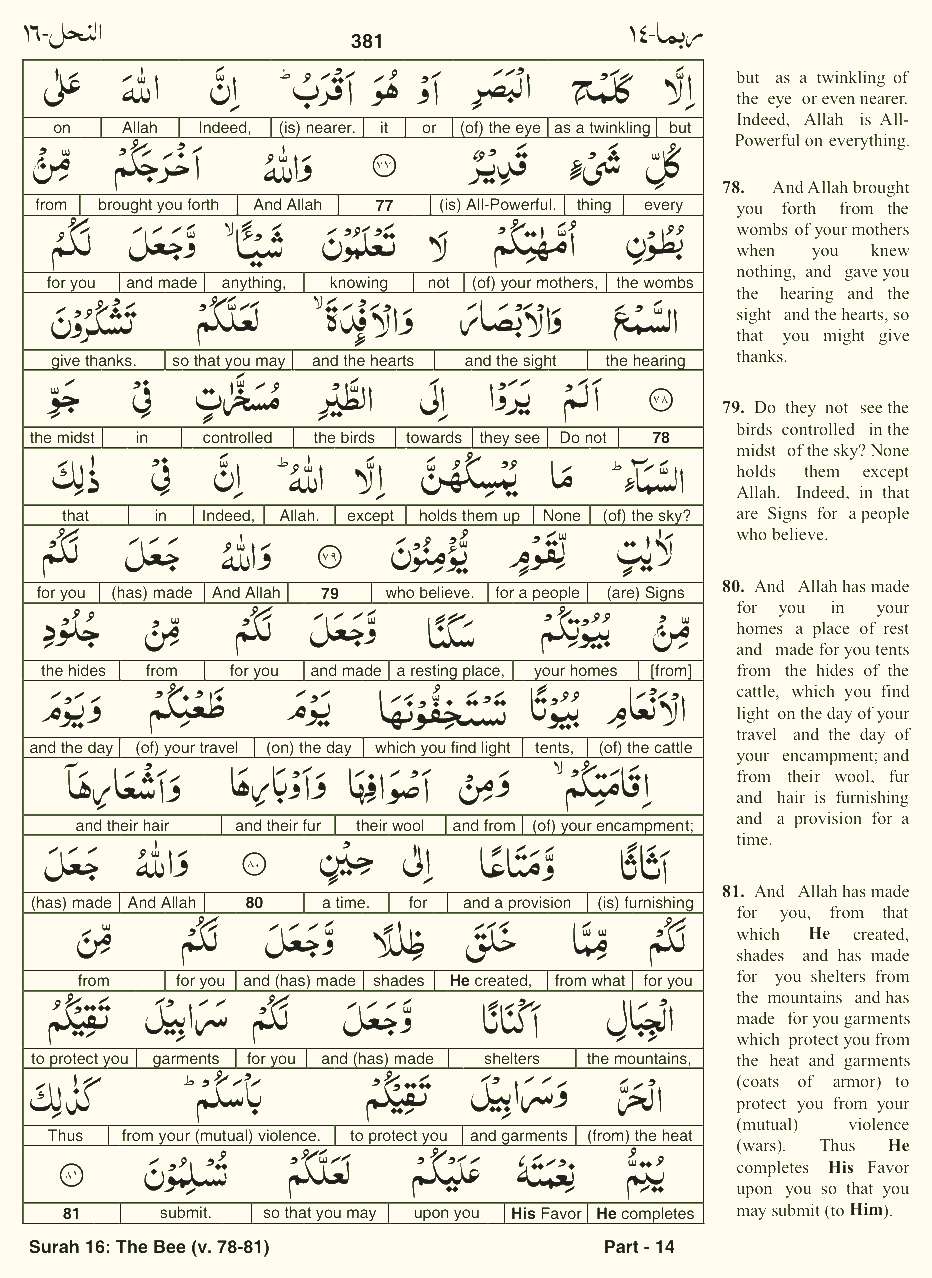 النحل-١٦ 381 ربما-١٤
اِلَّا كَلَمْحِ الْبَصَرِ اَوْ هُوَ اَقْرَبُ ؕ اِنَّ اللّٰهَ عَلٰى
on | Allah | Indeed, | (is) nearer. | it | or | (of) the eye | as a twinkling | but
كُلِّ شَىْءٍ قَدِيْرٌ ﴿٧٧﴾ وَاللّٰهُ اَخْرَجَكُمْ مِّنْۢ
from | brought you forth | And Allah | 77 | (is) All-Powerful. | thing | every
بُطُوْنِ اُمَّهٰتِكُمْ لَا تَعْلَمُوْنَ شَيْـًٔا ۙ وَّجَعَلَ لَكُمُ
for you | and made | anything, | knowing | not | (of) your mothers, | the wombs
السَّمْعَ وَالْاَبْصَارَ وَالْاَفْـِٕدَةَ ۙ لَعَلَّكُمْ تَشْكُرُوْنَ
give thanks. | so that you may | and the hearts | and the sight | the hearing
﴿٧٨﴾ اَلَمْ يَرَوْا اِلَى الطَّيْرِ مُسَخَّرٰتٍ فِىْ جَوِّ
the midst | in | controlled | the birds | towards | they see | Do not | 78
السَّمَآءِ ؕ مَا يُمْسِكُهُنَّ اِلَّا اللّٰهُ ؕ اِنَّ فِىْ ذٰلِكَ
that | in | Indeed, | Allah. | except | holds them up | None | (of) the sky?
لَاٰيٰتٍ لِّقَوْمٍ يُّؤْمِنُوْنَ ﴿٧٩﴾ وَاللّٰهُ جَعَلَ لَكُمْ
for you | (has) made | And Allah | 79 | who believe. | for a people | (are) Signs
مِّنْۢ بُيُوْتِكُمْ سَكَنًا وَّجَعَلَ لَكُمْ مِّنْ جُلُوْدِ
the hides | from | for you | and made | a resting place, | your homes | [from]
الْاَنْعَامِ بُيُوْتًا تَسْتَخِفُّوْنَهَا يَوْمَ ظَعْنِكُمْ وَيَوْمَ
and the day | (of) your travel | (on) the day | which you find light | tents, | (of) the cattle
اِقَامَتِكُمْ ۙ وَمِنْ اَصْوَافِهَا وَاَوْبَارِهَا وَاَشْعَارِهَاۤ
and their hair | and their fur | their wool | and from | (of) your encampment;
اَثَاثًا وَّمَتَاعًا اِلٰى حِيْنٍ ﴿٨٠﴾ وَاللّٰهُ جَعَلَ
(has) made | And Allah | 80 | a time. | for | and a provision | (is) furnishing
لَكُمْ مِّمَّا خَلَقَ ظِلٰلًا وَّجَعَلَ لَكُمْ مِّنَ
from | for you | and (has) made | shades | He created, | from what | for you
الْجِبَالِ اَكْنَانًا وَّجَعَلَ لَكُمْ سَرَابِيْلَ تَقِيْكُمُ
to protect you | garments | for you | and (has) made | shelters | the mountains,
الْحَرَّ وَسَرَابِيْلَ تَقِيْكُمْ بَاْسَكُمْ ؕ كَذٰلِكَ
Thus | from your (mutual) violence. | to protect you | and garments | (from) the heat
يُتِمُّ نِعْمَتَهٗ عَلَيْكُمْ لَعَلَّكُمْ تُسْلِمُوْنَ ﴿٨١﴾
81 | submit. | so that you may | upon you | His Favor | He completes
but as a twinkling of
the eye or even nearer.
Indeed, Allah is All-
Powerful on everything.
78. And Allah brought
you forth from the
wombs of your mothers
when you knew
nothing, and gave you
the hearing and the
sight and the hearts, so
that you might give
thanks.
79. Do they not see the
birds controlled in the
midst of the sky? None
holds them except
Allah. Indeed, in that
are Signs for a people
who believe.
80. And Allah has made
for you in your
homes a place of rest
and made for you tents
from the hides of the
cattle, which you find
light on the day of your
travel and the day of
your encampment; and
from their wool, fur
and hair is furnishing
and a provision for a
time.
81. And Allah has made
for you, from that
which He created,
shades and has made
for you shelters from
the mountains and has
made for you garments
which protect you from
the heat and garments
(coats of armor) to
protect you from your
(mutual) violence
(wars). Thus He
completes His Favor
upon you so that you
may submit (to Him).
Surah 16: The Bee (v. 78-81) Part - 14